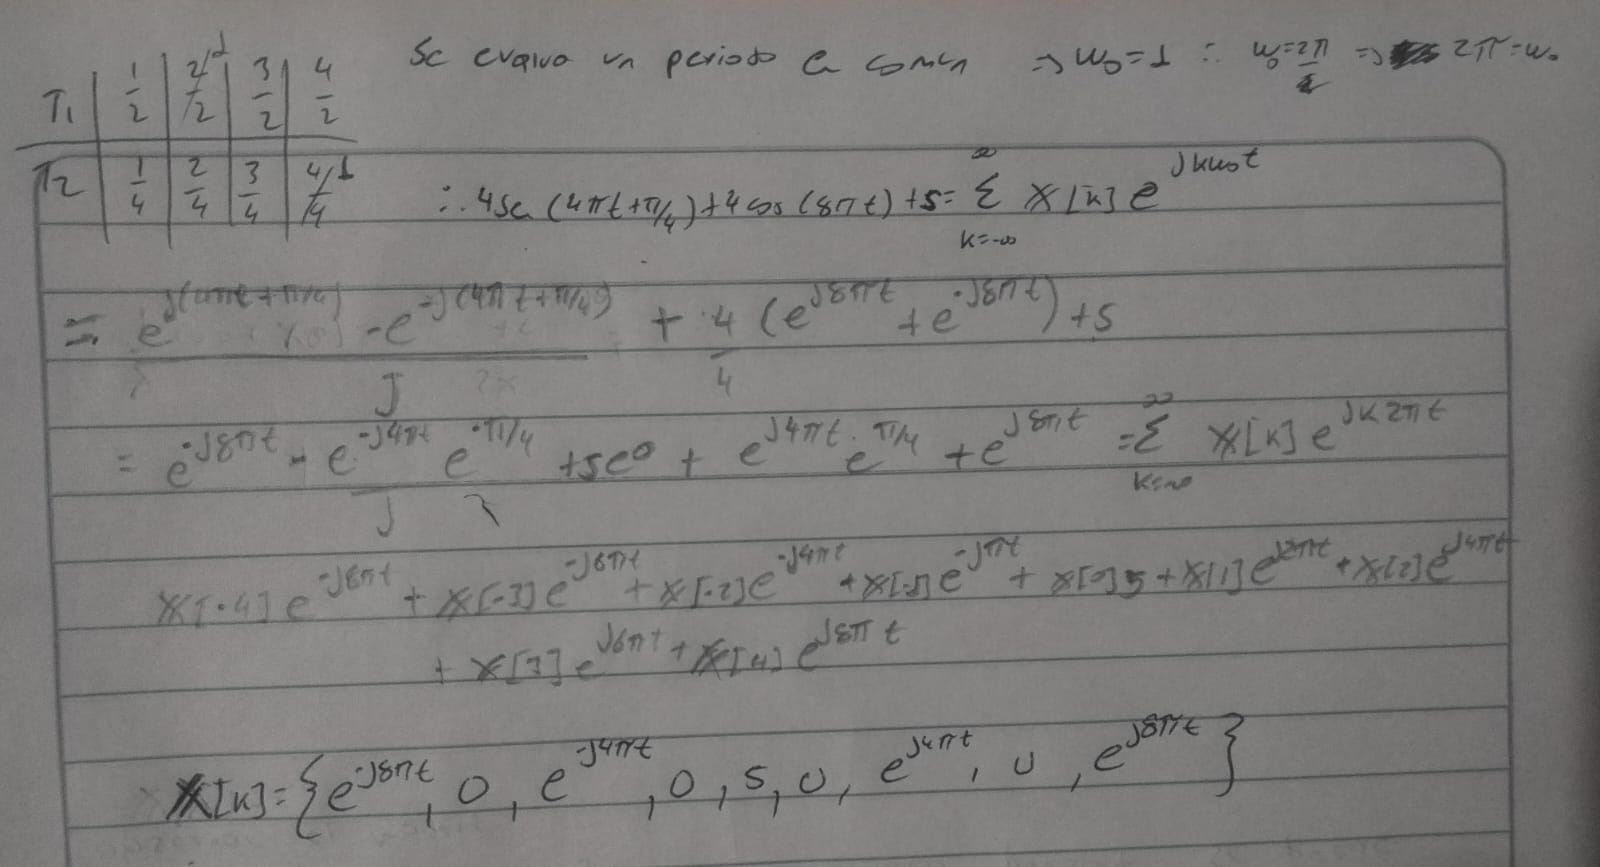 T₁ | 1/2 | 2/2 1 | 3/2 | 4/2 Se evalua un periodo en comun ⇒ W₀=1 ∴ W₀=2π/1 ⇒ 2π=W₀
T₂ | 1/4 | 2/4 | 3/4 | 4/4 1
∴ 4 Sen (4πt+π/4)+4 cos (8πt) +5= Σ_{k=-∞}^{∞} X[k] e^{jkω₀t}
= (e^{j(4πt+π/4)} - e^{-j(4πt+π/4)})/J + 4/4 (e^{j8πt} + e^{-j8πt}) +5
= e^{-j8πt} - e^{-j4πt} e^{-π/4}/J +5e⁰ + e^{j4πt} · e^{π/4} + e^{j8πt} = Σ_{k=-∞}^{∞} X[k] e^{jk2πt}
X[-4] e^{-j8πt} + X[-3] e^{-j6πt} + X[-2] e^{-j4πt} + X[-1] e^{-jπt} + X[0]5 + X[1] e^{j2πt} + X[2] e^{j4πt}
+ X[3] e^{j6πt} + X[4] e^{j8πt}
X[k]= {e^{-j8πt}, 0, e^{-j4πt}, 0, 5, 0, e^{j4πt}, 0, e^{j8πt}}